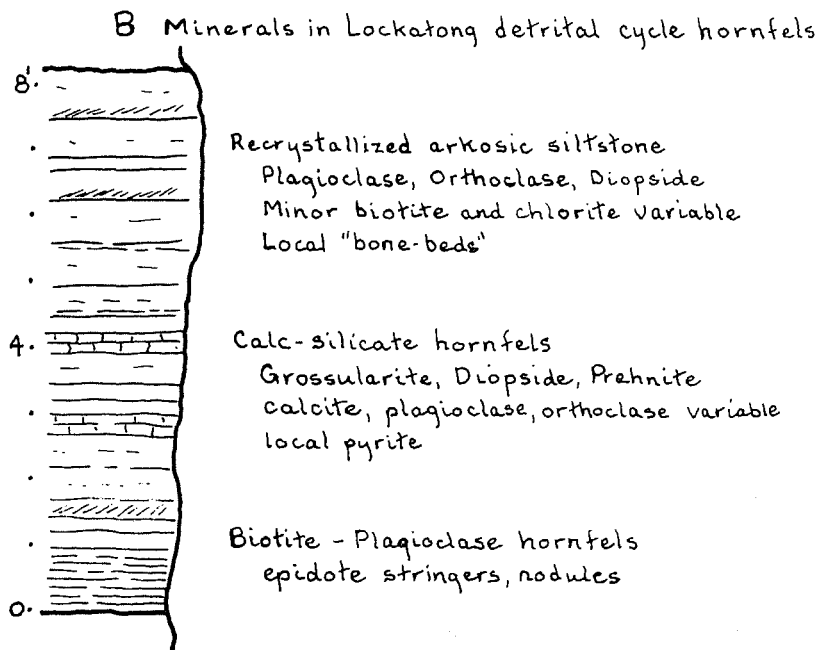 B Minerals in Lockatong detrital cycle hornfels
8'
Recrystallized arkosic siltstone
Plagioclase, Orthoclase, Diopside
Minor biotite and chlorite variable
Local "bone-beds"
4
Calc-silicate hornfels
Grossularite, Diopside, Prehnite
calcite, plagioclase, orthoclase variable
local pyrite
Biotite - Plagioclase hornfels
epidote stringers, nodules
0